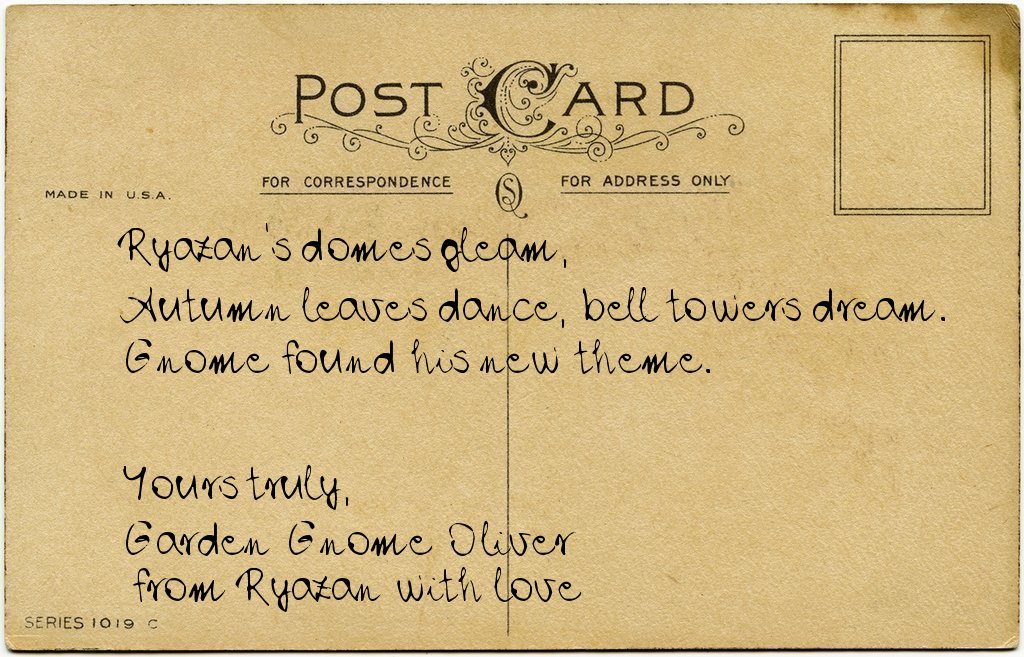 POST CARD
FOR CORRESPONDENCE
FOR ADDRESS ONLY
MADE IN U.S.A.
Ryazan's domes gleam,
Autumn leaves dance, bell towers dream.
Gnome found his new theme.
Yours truly,
Garden Gnome Oliver
from Ryazan with love
SERIES 1019 C